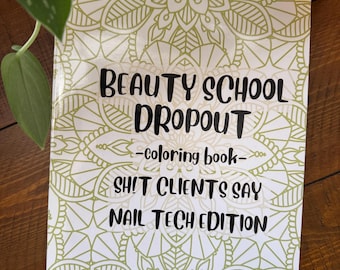 BEAUTY SCHOOL
DROPOUT
-coloring book-
SH!T CLIENTS SAY
NAIL TECH EDITION